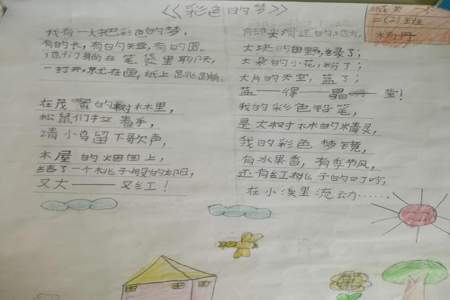 《彩色的梦》
二(2)班
我有一大把彩色的梦,
有的长,有的短,有的圆。
他们躺在笔袋里聊天,
一打开,就在白纸上蹦蹦跳跳。
在葱郁的树木林里,
松鼠们拉着手,
请小鸟留下歌声,
木屋的烟囱上,
又大——又红!
脚尖滑过的地方,
大块的田野,绿了;
大朵的小花,粉了;
大片的天空,蓝了;
蓝——得——
我的彩色铅笔,
是大树林的精灵,
我的彩色梦境,
有水果香,有季节风,
还有红松子的叮咛,
在小溪里流动……